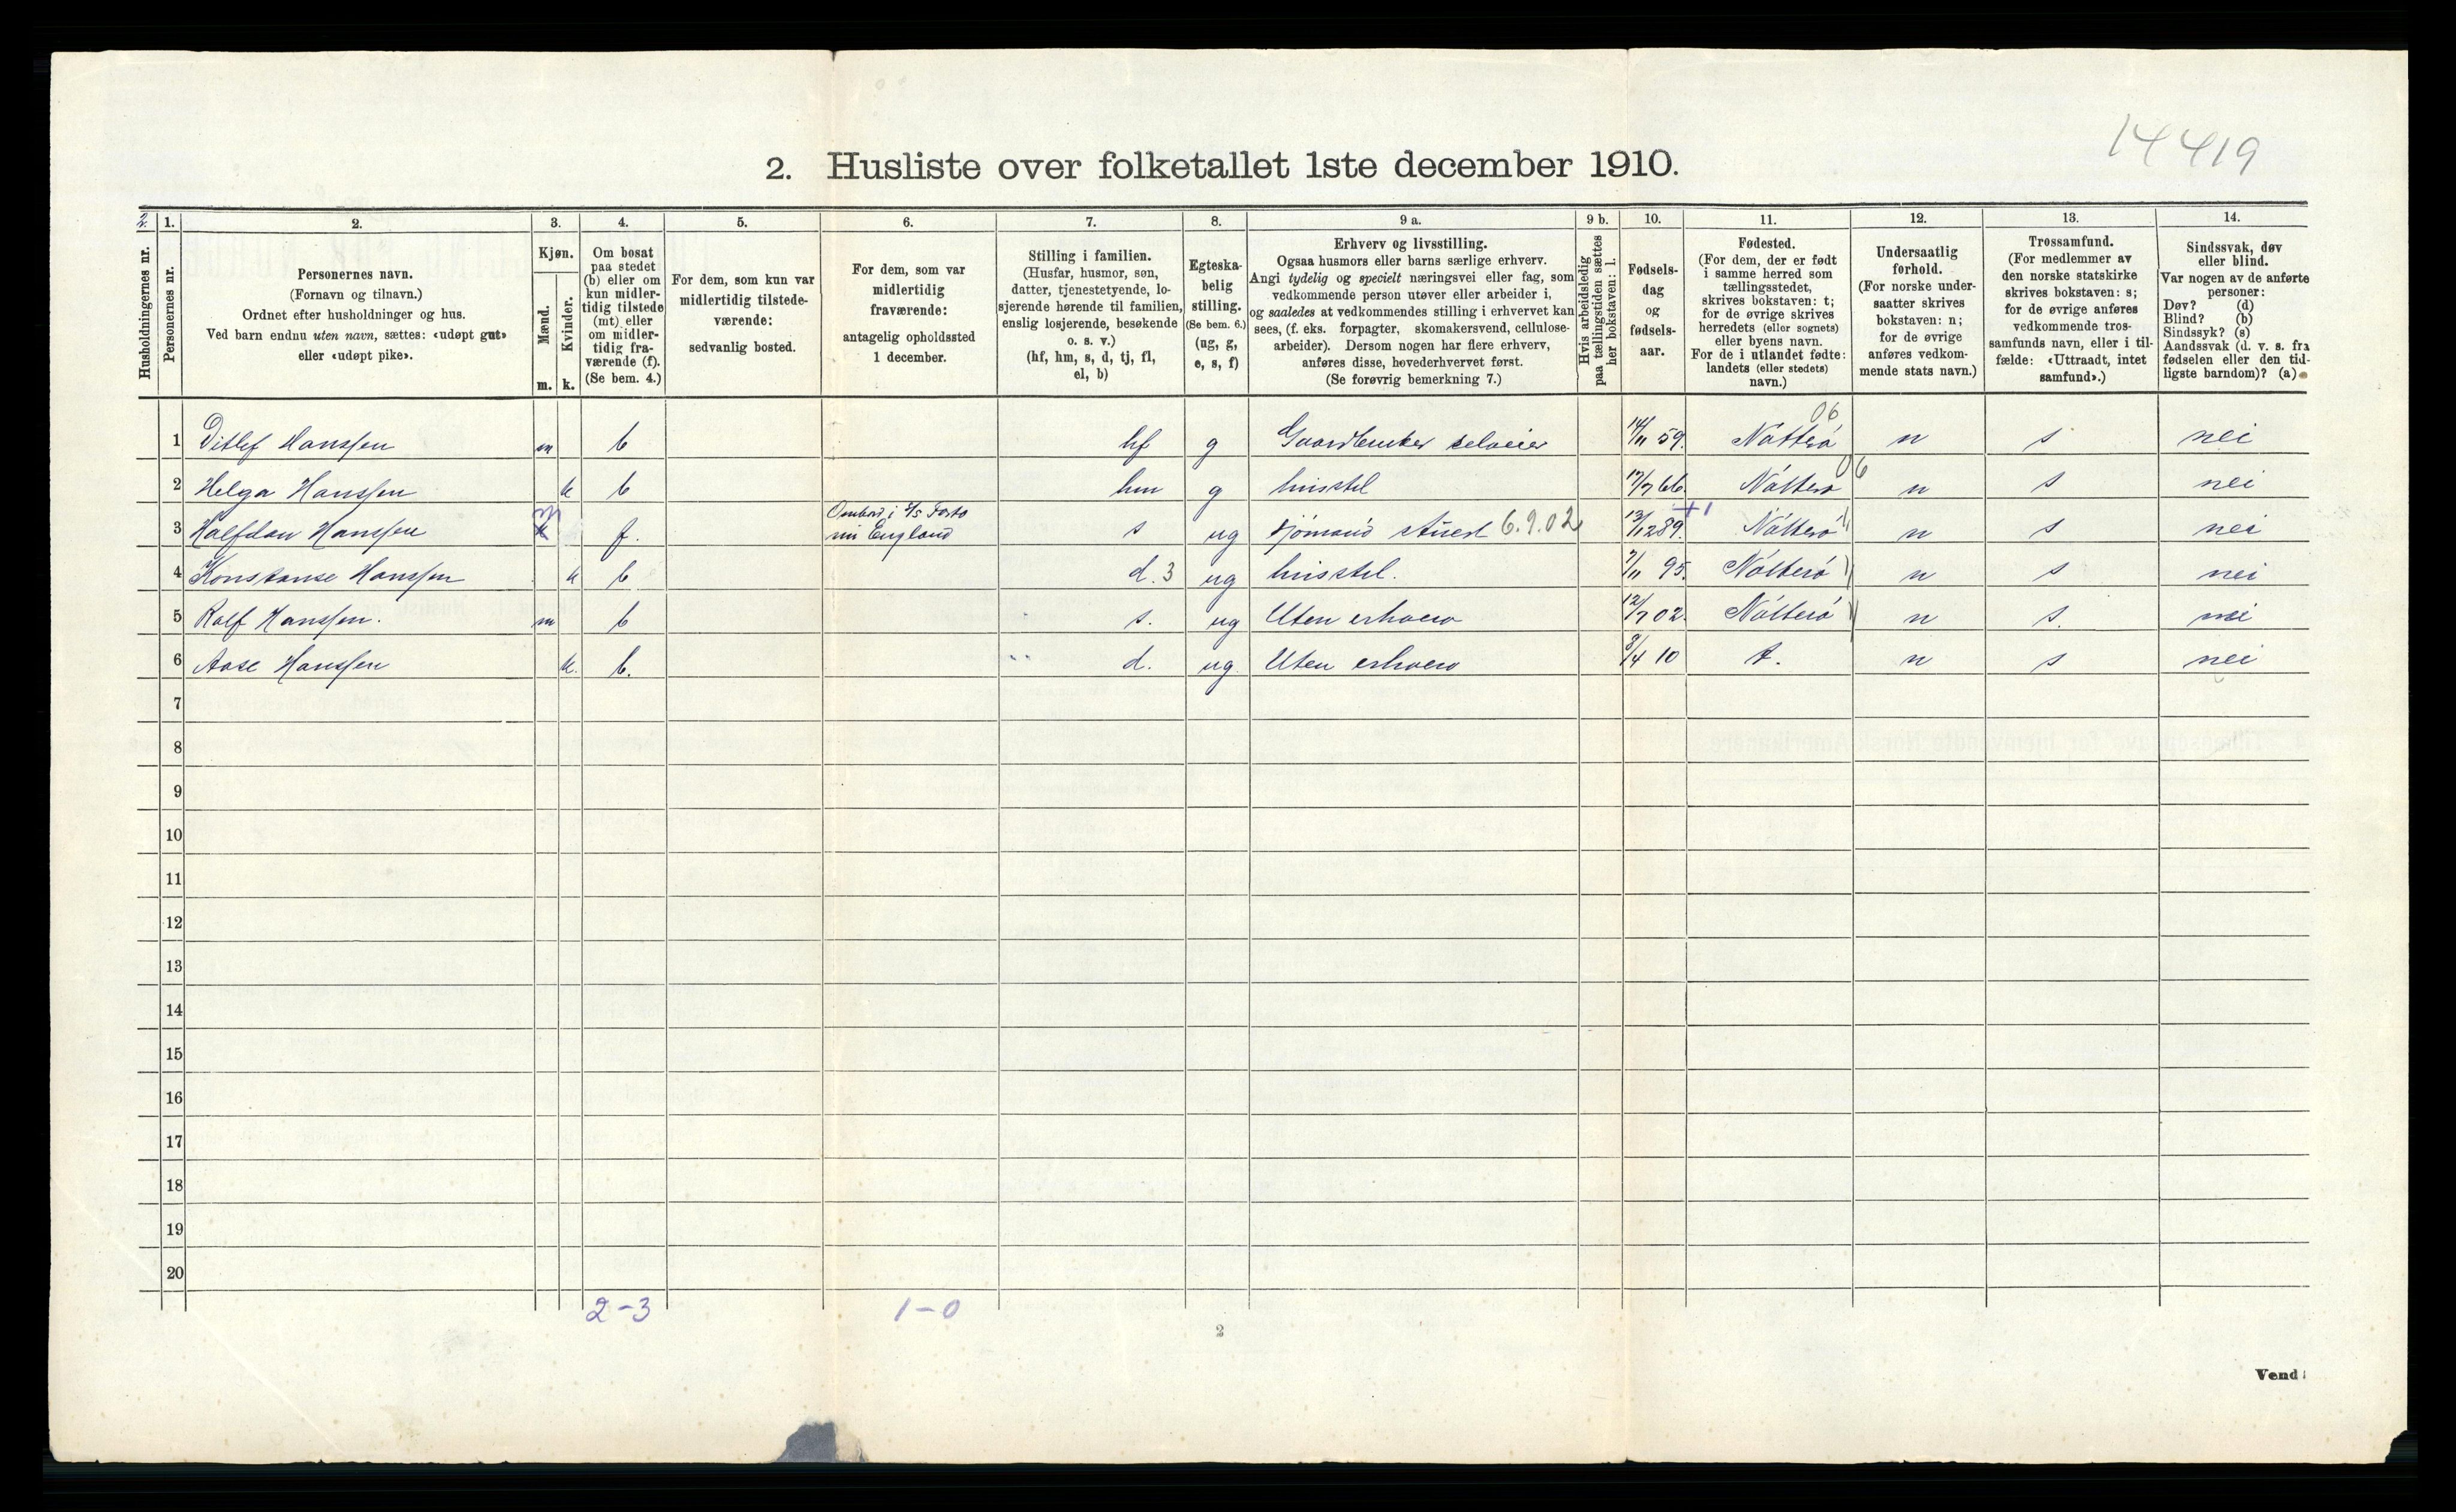 14419
2. Husliste over folketallet 1ste december 1910.
2.
Husholdningernes nr.
1.
Personernes nr.
2.
Personernes navn.
(Fornavn og tilnavn.)
Ordnet efter husholdninger og hus.
Ved barn endnu uten navn, sættes: «udøpt gut»
eller «udøpt pike».
3.
Kjøn.
Mænd.
Kvinder.
m. k.
4.
Om bosat
paa stedet
(b) eller om
kun midler-
tidig tilstede
(mt) eller
om midler-
tidig fra-
værende (f).
(Se bem. 4.)
5.
For dem, som kun var
midlertidig tilstede-
værende:
sedvanlig bosted.
6.
For dem, som var
midlertidig
fraværende:
antagelig opholdssted
1 december.
7.
Stilling i familien.
(Husfar, husmor, søn,
datter, tjenestetyende, lo-
sjerende hørende til familien,
enslig losjerende, besøkende
o. s. v.)
(hf, hm, s, d, tj, fl,
el, b)
8.
Egteska-
belig
stilling.
(Se bem. 6.)
(ug, g,
e, s, f)
9 a.
Erhverv og livsstilling.
Ogsaa husmors eller barns særlige erhverv.
Angi tydelig og specielt næringsvei eller fag, som
vedkommende person utøver eller arbeider i,
og saaledes at vedkommendes stilling i erhvervet kan
sees, (f. eks. forpagter, skomakersvend, cellulose-
arbeider). Dersom nogen har flere erhverv,
anføres disse, hovederhvervet først.
(Se forøvrig bemerkning 7.)
9 b.
Hvis arbeidsledig
paa tællingstiden sættes
her bokstaven: l.
10.
Fødsels-
dag
og
fødsels-
aar.
11.
Fødested.
(For dem, der er født
i samme herred som
tællingsstedet,
skrives bokstaven: t;
for de øvrige skrives
herredets (eller sognets)
eller byens navn.
For de i utlandet fødte:
landets (eller stedets)
navn.)
12.
Undersaatlig
forhold.
(For norske under-
saatter skrives
bokstaven: n;
for de øvrige
anføres vedkom-
mende stats navn.)
13.
Trossamfund.
(For medlemmer av
den norske statskirke
skrives bokstaven: s;
for de øvrige anføres
vedkommende tros-
samfunds navn, eller i til-
fælde: «Uttraadt, intet
samfund».)
14.
Sindssvak, døv
eller blind.
Var nogen av de anførte
personer:
Døv? (d)
Blind? (b)
Sindssyk? (s)
Aandssvak (d. v. s. fra
fødselen eller den tid-
ligste barndom)? (a)
06
1 Ditlef Hanssen m b hf g Gaardbruker selveier 14/11 59. Nötterö n s nei
2 Helga Hanssen k b hm g husstel 17/7 66. Nötterö 06 n s nei
3 Halfdan Hanssen m f. Ombord i S/s nu England s ug sjömand 6.9.02 13/12 89. +1 Nötterö n s nei
4 Konstanse Hanssen k b d. 3 ug husstel. 7/11 95. Nötterö n s nei
5 Rolf Hanssen. m b s. ug Uten erhverv 12/7 02. Nötterö n s. nei
6 Aase Hanssen k. b. d. ug. Uten erhverv 3/4 10 t. n s nei
7
8
9
10
11
12
13
14
15
16
17
18
19
20
2-3 1-0
2
Vend